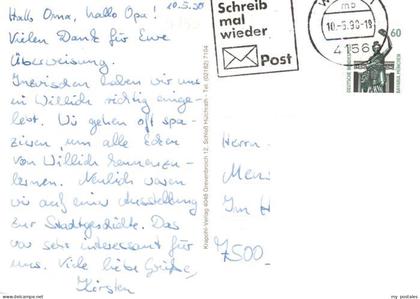 10.5.90
Hallo Oma, hallo Opa!
Vielen Dank für Eure
Überweisung.
Inzwischen haben wir uns
in Willich richtig einge-
lebt. Wir gehen oft spa-
zieren, um alle Ecken
von Willich kennenzu-
lernen. Neulich waren
wir auf einer Ausstellung
zur Stadtgeschichte. Das
war sehr interessant für
uns. Viele liebe Grüße,
Kirsten
Krapohl-Verlag 4048 Grevenbroich 12, Schloß Hülchrath · Tel. (02182) 7104
Schreib
mal
wieder
Post
mb
10.-5.90-18
4156
60
DEUTSCHE
BAVARIA MÜNCHEN
Herrn
Im H
7500